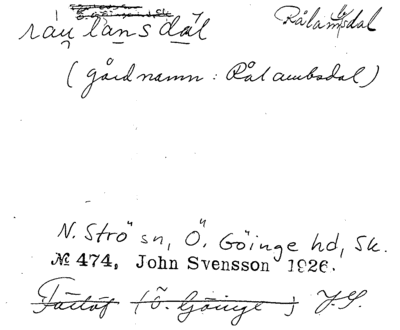 råu̯lansdal Rålambsdal
(gårdnamn: Rålambsdal)
N. Strö sn, Ö. Göinge hd, Sk.
№ 474, John Svensson 1926.
(Ö. Göinge) J.S.